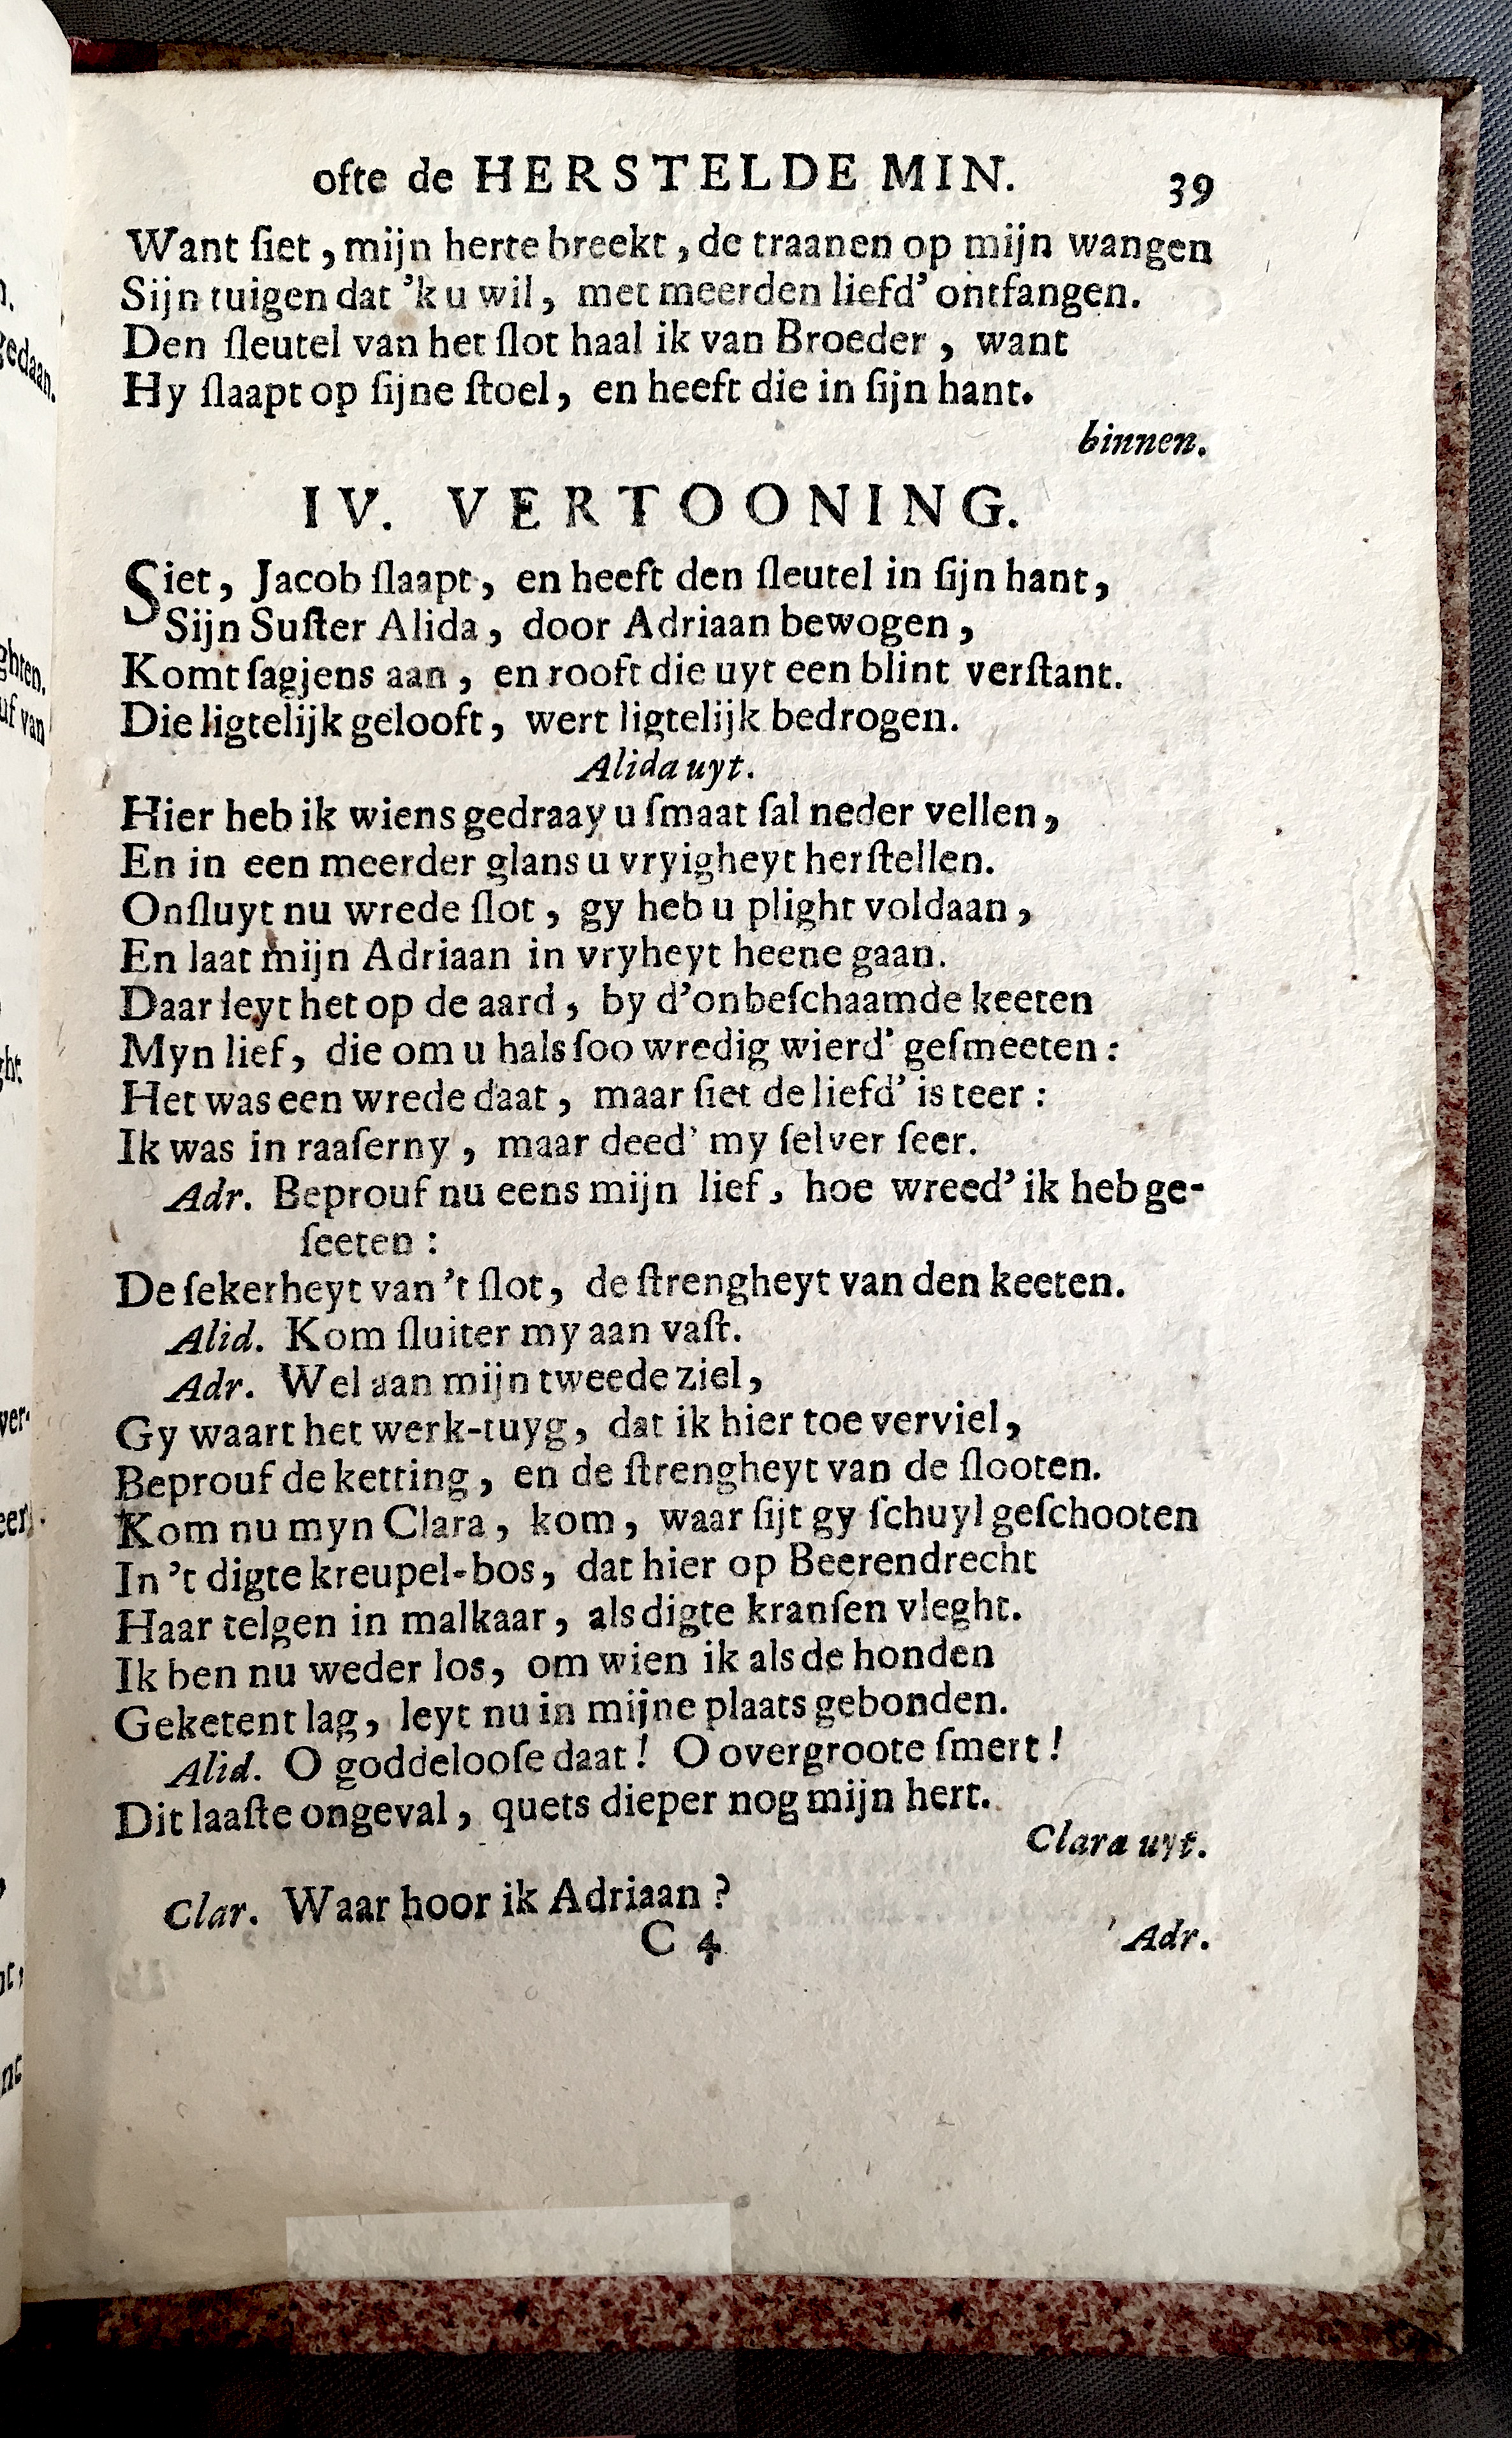 ofte de HERSTELDE MIN. 39
Want ſiet, mijn herte breekt, de traanen op mijn wangen
Sijn tuigen dat 'k u wil, met meerden liefd' ontfangen.
Den ſleutel van het ſlot haal ik van Broeder, want
Hy ſlaapt op ſijne ſtoel, en heeft die in ſijn hant.
binnen.
IV. VERTOONING.
Siet, Jacob ſlaapt, en heeft den ſleutel in ſijn hant,
Sijn Suſter Alida, door Adriaan bewogen,
Komt ſagjens aan, en rooft die uyt een blint verſtant.
Die ligtelijk gelooft, wert ligtelijk bedrogen.
Alida uyt.
Hier heb ik wiens gedraay u ſmaat ſal neder vellen,
En in een meerder glans u vryigheyt herſtellen.
Onſluyt nu wrede ſlot, gy heb u plight voldaan,
En laat mijn Adriaan in vryheyt heene gaan.
Daar leyt het op de aard, by d'onbeſchaamde keeten
Myn lief, die om u hals ſoo wredig wierd' geſmeeten:
Het was een wrede daat, maar ſiet de liefd' is teer:
Ik was in raaſerny, maar deed' my ſelver ſeer.
Adr. Beprouf nu eens mijn lief, hoe wreed' ik heb ge-
ſeeten:
De ſekerheyt van 't ſlot, de ſtrengheyt van den keeten.
Alid. Kom ſluiter my aan vaſt.
Adr. Wel aan mijn tweede ziel,
Gy waart het werk-tuyg, dat ik hier toe verviel,
Beprouf de ketting, en de ſtrengheyt van de ſlooten.
Kom nu myn Clara, kom, waar ſijt gy ſchuyl geſchooten
In 't digte kreupel-bos, dat hier op Beerendrecht
Haar telgen in malkaar, als digte kranſen vleght.
Ik ben nu weder los, om wien ik als de honden
Geketent lag, leyt nu in mijne plaats gebonden.
Alid. O goddelooſe daat! O overgroote ſmert!
Dit laaſte ongeval, quets dieper nog mijn hert.
Clara uyt.
Clar. Waar hoor ik Adriaan?
C 4 Adr.